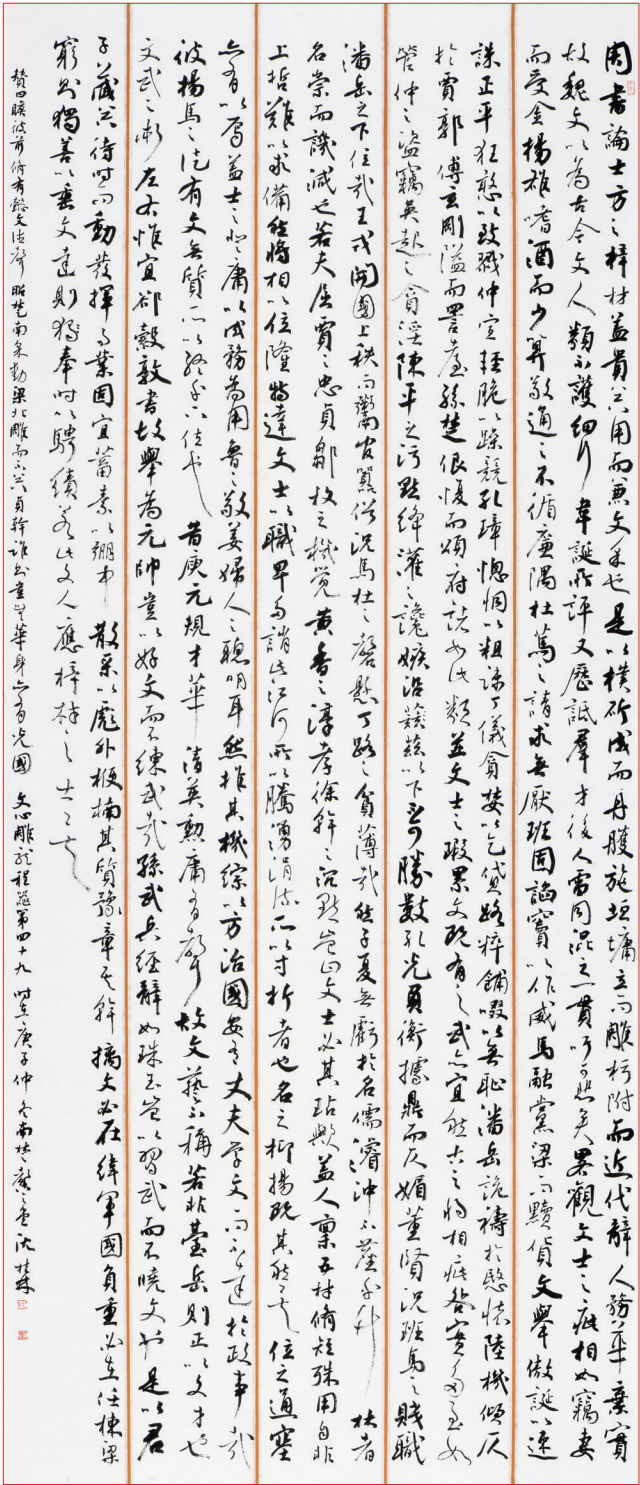 周書論士方之梓材蓋貴器用而兼文采也是以樸斫成而丹雘施垣墉立而雕杇附而近代辭人務華棄實
故魏文以為古今文人類不護細行韋誕所評又歷詆群才後人雷同混之一貫吁可悲矣略觀文士之疵相如竊妻
而受金揚雄嗜酒而少算敬通之不循廉隅杜篤之請求無厭班固諂竇以作威馬融黨梁而黷貨文舉傲誕以速
誅正平狂憨以致戮仲宣輕脆以躁競孔璋惚恫以粗疎丁儀貪婪以乞貸路粹餔啜以無恥潘岳詭禱於愍懷陸機傾仄
於賈郭傅玄剛隘而詈臺孫楚佷愎而頌府諸如此類並文士之瑕累文既有之武亦宜然古之將相疵咎實多至如
管仲之盜竊吳起之貪淫陳平之污點絳灌之讒嫉沿茲以下不可勝數孔光負衡據鼎而仄媚董賢況班馬之賤職
潘岳之下位哉王戎開國上秩而鬻官囂俗況馬杜之磬懸丁路之貧薄哉然子夏無虧於名儒濬沖不塵乎竹林者
名崇而譏減也若夫屈賈之忠貞鄒枚之機覺黃香之淳孝徐幹之沉默豈曰文士必其玷歟蓋人稟五材脩短殊用自非
上哲難以求備然將相以位隆特達文士以職卑多誚此江河所以騰湧涓流所以寸折者也名之抑揚既其然矣位之通塞
亦有以焉蓋士之登庸以成務為用魯之敬姜婦人之聰明耳然推其機綜以方治國安有丈夫學文而不達於政事哉
彼揚馬之徒有文無質所以終乎下位也昔庾元規才華清英勳庸有聲故文藝不稱若非臺岳則正以文才也
文武之術左右惟宜郤縠敦書故舉為元帥豈以好文而不練武哉孫武兵經辭如珠玉豈以習武而不曉文也是以君
子藏器待時而動發揮事業固宜蓄素以弸中散采以彪外楩楠其質豫章其幹摛文必在緯軍國負重必在任棟梁
窮則獨善以垂文達則奉時以騁績若此文人應梓材之士矣
贊曰瞻彼前脩有懿文德聲昭楚南采動梁北雕而不器貞幹誰則豈無華身亦有光國 文心雕龍程器第四十九 時在庚子仲冬南 沈桂林